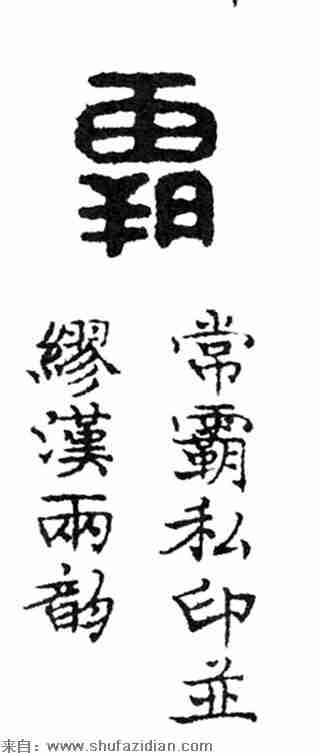 霸
常霸私印並
繆漢兩韵
来自：www.shufazidian.com